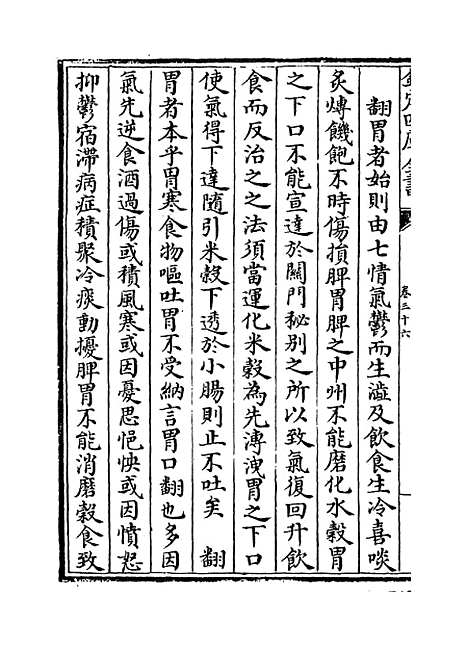 卷三十六
翻胃者始則由七情氣鬱而生湓及飲食生冷喜啖
炙煿饑飽不時傷損脾胃脾之中州不能磨化水糓胃
之下口不能宣達於闌門秘别之所以致氣復回升飲
食而反治之之法須當運化米糓為先溥洩胃之下口
使氣得下達隨引米糓下透於小腸則止不吐矣　翻
胃者本乎胃寒食物嘔吐胃不受納言胃口翻也多因
氣先逆食酒過傷或積風寒或因憂思悒怏或因憤怒
抑鬱宿滯病症積聚冷痰動擾脾胃不能消磨糓食致